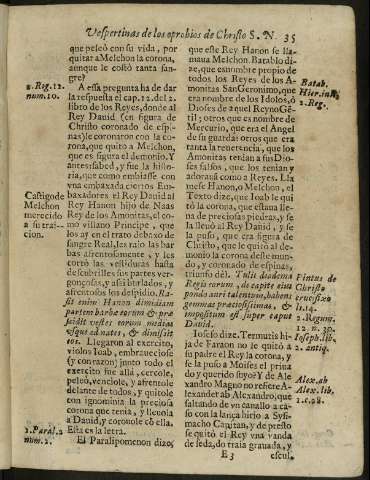 Vespertinas de los oprobios de Christo S. N. 35
que peleò con su vida, por
quitar a Melchon la corona,
aunque le costò tanta san-
gre?
2. Reg. 12.
num. 10.
A essa pregunta ha de dar
la respuesta el cap. 12. del 2.
libro de los Reyes, donde al
Rey Dauid (en figura de
Christo coronado de espi-
nas) le coronaron con la co-
rona, que quito a Melchon,
que es figura el demonio. Y
antes: sabed, y fue la histo-
ria, que como embiasse con
vna embaxada ciertos Em-
Castigo de
Melchon
merecido
a su trai-
cion.
baxadores el Rey Dauid al
Rey Hanon hijo de Naas
Rey de los Amonitas, el co-
mo villano Principe, que
los ay en el trato debaxo de
sangre Real, les raio las bar
bas afrentosamente, y les
cortò las vestiduras hasta
descubrilles sus partes ver-
gonçosas, y assi burlados, y
afrentosos los despidio. Ra-
sit enim Hanon dimidiam
partem barbæ eorum & præ
scidit vestes eorum medias
vsque ad nates, & dimisit
eos. Llegaron al exercito,
violos Ioab, embrauecióse
(y con razon) junto todo el
exercito fue allà, cercole,
peleò, venciole, y afrentole
delante de todos, y quitole
con ignominia la preciosa
corona que tenia, y lleuola
a Dauid, y coronole cõ ella.
Esta es la letra.
1. Paral. 2
num. 2.
El Paralipomenon dize,
que este Rey Hanon se lla-
maua Melchon. Batablo di-
ze, que es nombre propio de
todos los Reyes de los A-
Batab.
Hier. in
2. Reg.
monitas San Geronimo, que
era nombre de los Idolos, ó
Dioses de aquel Reyno Gē-
til; otros que es nombre de
Mercurio, que era el Angel
de su guarda: otros que era
tanta la reuerencia, que los
Amonitas tenian a sus Dio-
ses falsos, que los tenian y
adorauã como a Reyes. Lla
mese Hanon, o Melchon, el
Texto dize, que Ioab le qui
tò la corona, que estaua lle-
na de preciosas piedras, y se
la lleuò al Rey Dauid, y se
la puso, que era figura de
Christo, que le quitò al de-
monio la corona deste mun-
do, y coronado de espinas,
triunfò dèl. Tulit diadema
Regis eorum, de capite eius
pondo auri talentum, habens
gemmas preciosissimas, &
impositum est super caput
Dauid.
Pintus de
Christo
crucifixo
2. Regum.
12. n. 30.
Ioseph. lib.
2. antiq.
Iosefo dize. Termutis hi-
ja de Faraon no le quitò a
su padre el Rey la corona, y
se la puso a Moises el prima
do y querido suyo? Y de Ale
xandro Magno no refiere A-
Alex. ab
Alex. lib.
1. c. 28.
lexander ab Alexandro, que
saltando de vn cauallo a ca-
so con la lança hirio a Lysi-
macho Capitan, y de presto
se quitò el Rey vna vanda
de seda, do traia grauada, y
E 3
escul-